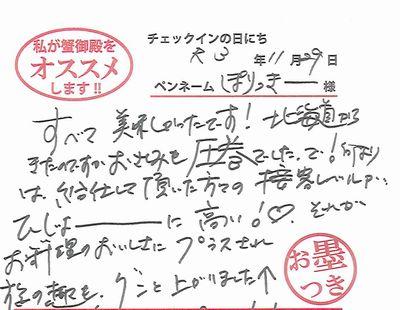 私が蟹御殿を
オススメ
します!!
チェックインの日にち
R3年11月29日
ペンネーム ぽりっきー様
すべて 美味しかったです! 北海道から
きたのですがおさしみも 圧巻でした。で!何より
は、給仕して頂いた方々の 接客レベルが…
ひじょーーーに 高い!♡ それが
お料理のおいしさに プラスされ
旅の趣も、グンと上がりました↑
お墨
つき